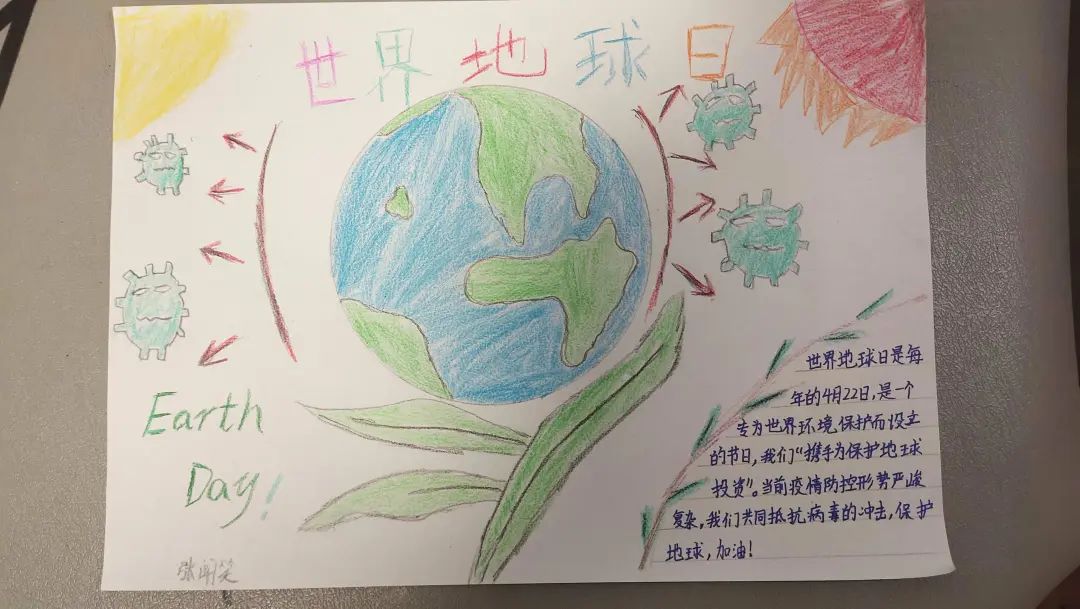 世界地球日
Earth
Day!
世界地球日是每
年的4月22日,是一个
专为世界环境保护而设立
的节日,我们"携手为保护地球
投资"。当前疫情防控形势严峻
复杂,我们共同抵抗病毒的冲击,保护
地球,加油!
张闻笑